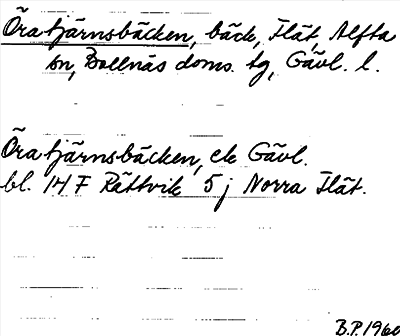 Öratjärnsbäcken, bäck, Flät, Alfta
sn, Bollnäs doms. tg, Gävl. l.
Öratjärnsbäcken, ek Gävl.
bl. 14 F Rättvik 5 j Norra Flät.
B.P. 1960